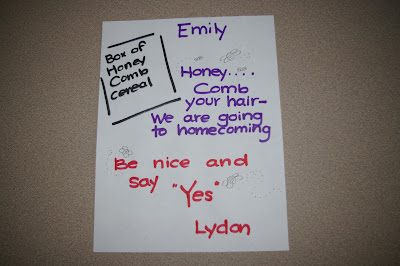 Emily
Box of
Honey
Comb
cereal
Honey....
Comb
your hair-
We are going
to homecoming
Be nice and
say "Yes"
Lydon